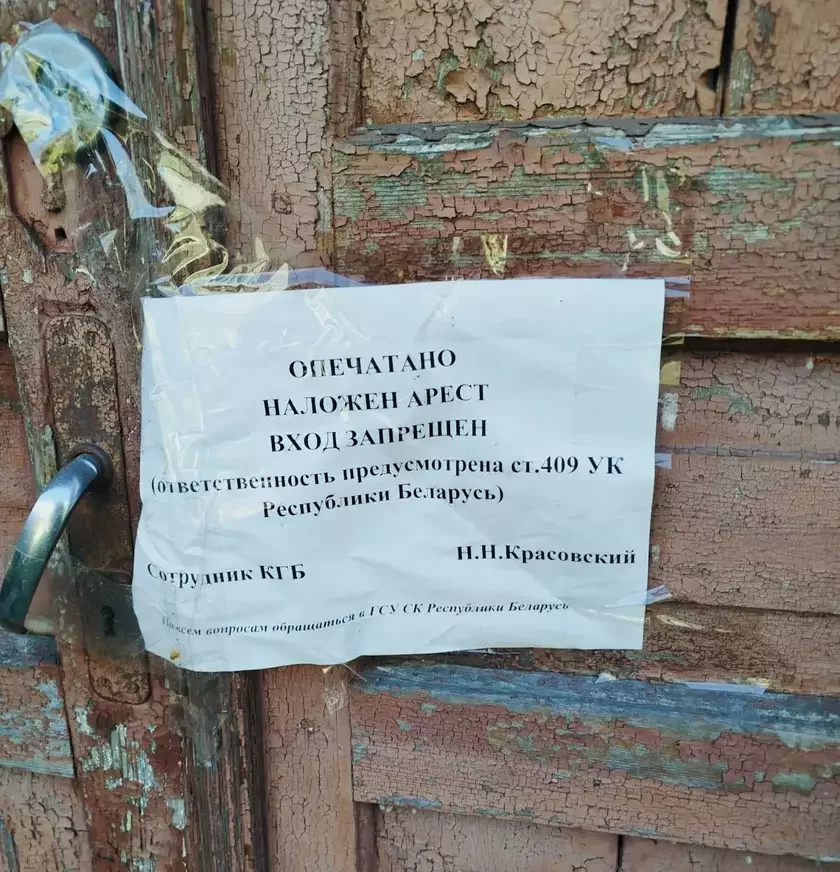 ОПЕЧАТАНО
НАЛОЖЕН АРЕСТ
ВХОД ЗАПРЕЩЕН
(ответственность предусмотрена ст.409 УК
Республики Беларусь)
Сотрудник КГБ Н.Н.Красовский
По всем вопросам обращаться в ГСУ СК Республики Беларусь